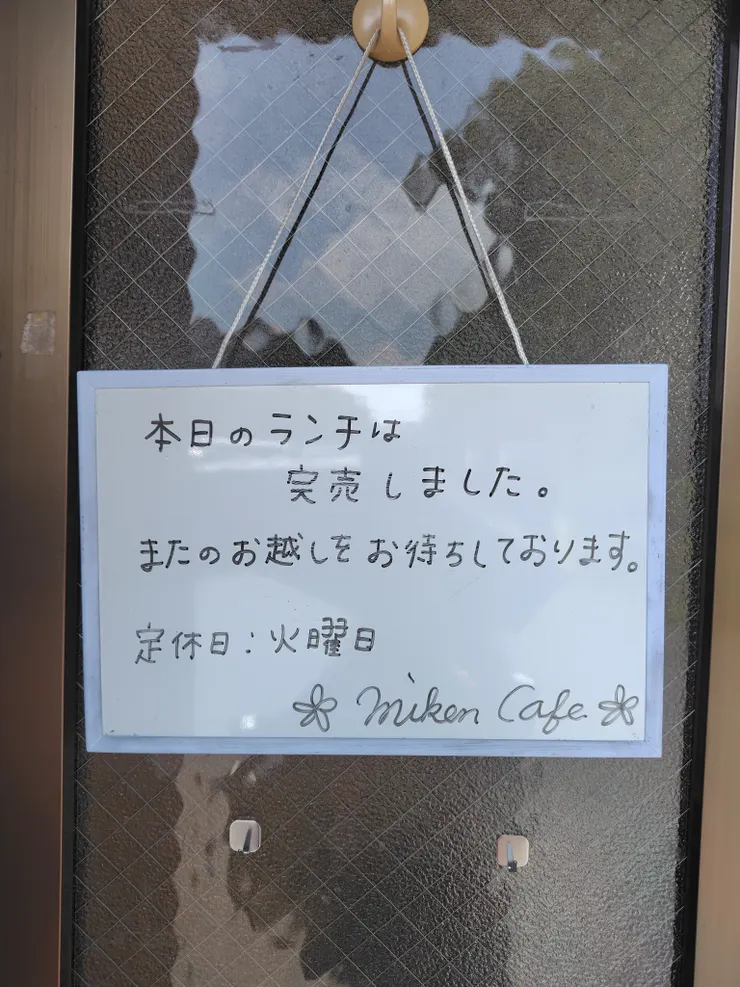 本日のランチは
完売しました。
またのお越しをお待ちしております。
定休日:火曜日
miken Cafe